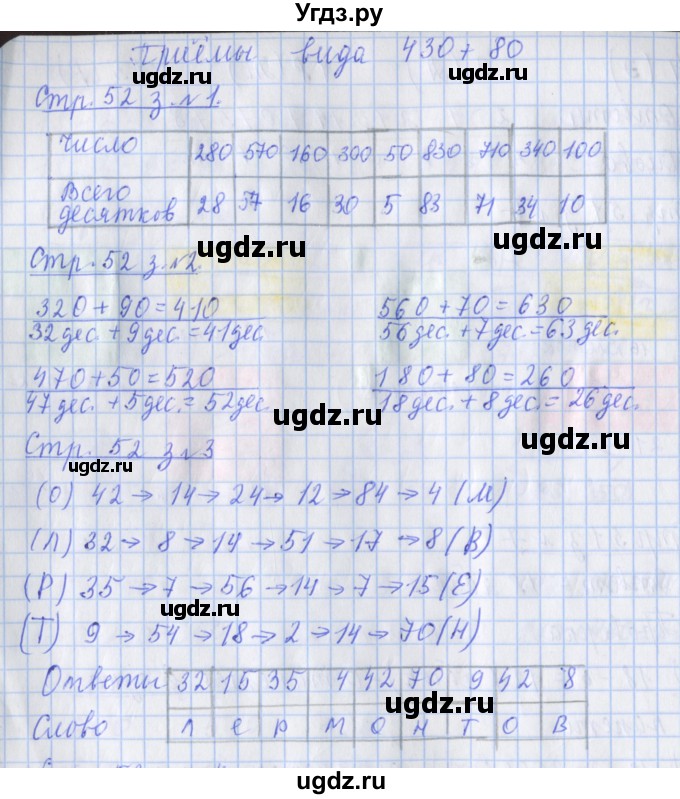 Угдз.ру
Приёмы вида 430 + 80
Стр. 52 з. №1.
Число 280 570 160 300 50 830 710 340 100
Всего десятков 28 57 16 30 5 83 71 34 10
Стр. 52 з. №2.
320 + 90 = 410 560 + 70 = 630
32 дес. + 9 дес. = 41 дес. 56 дес. + 7 дес. = 63 дес.
470 + 50 = 520 180 + 80 = 260
47 дес. + 5 дес. = 52 дес. 18 дес. + 8 дес. = 26 дес.
Стр. 52 з №3
(О) 42 → 14 → 24 → 12 → 84 → 4 (М)
(Л) 32 → 8 → 14 → 51 → 17 → 8 (В)
(Р) 35 → 7 → 56 → 14 → 7 → 15 (Е)
(Т) 9 → 54 → 18 → 2 → 14 → 70 (Н)
Ответы 32 15 35 4 42 70 9 42 8
Слово Л Е Р М О Н Т О В
ugdz.ru
ugdz.ru
ugdz.ru
ugdz.ru
ugdz.ru
ugdz.ru
ugdz.ru
ugdz.ru
ugdz.ru
ugdz.ru
ugdz.ru
ugdz.ru
ugdz.ru